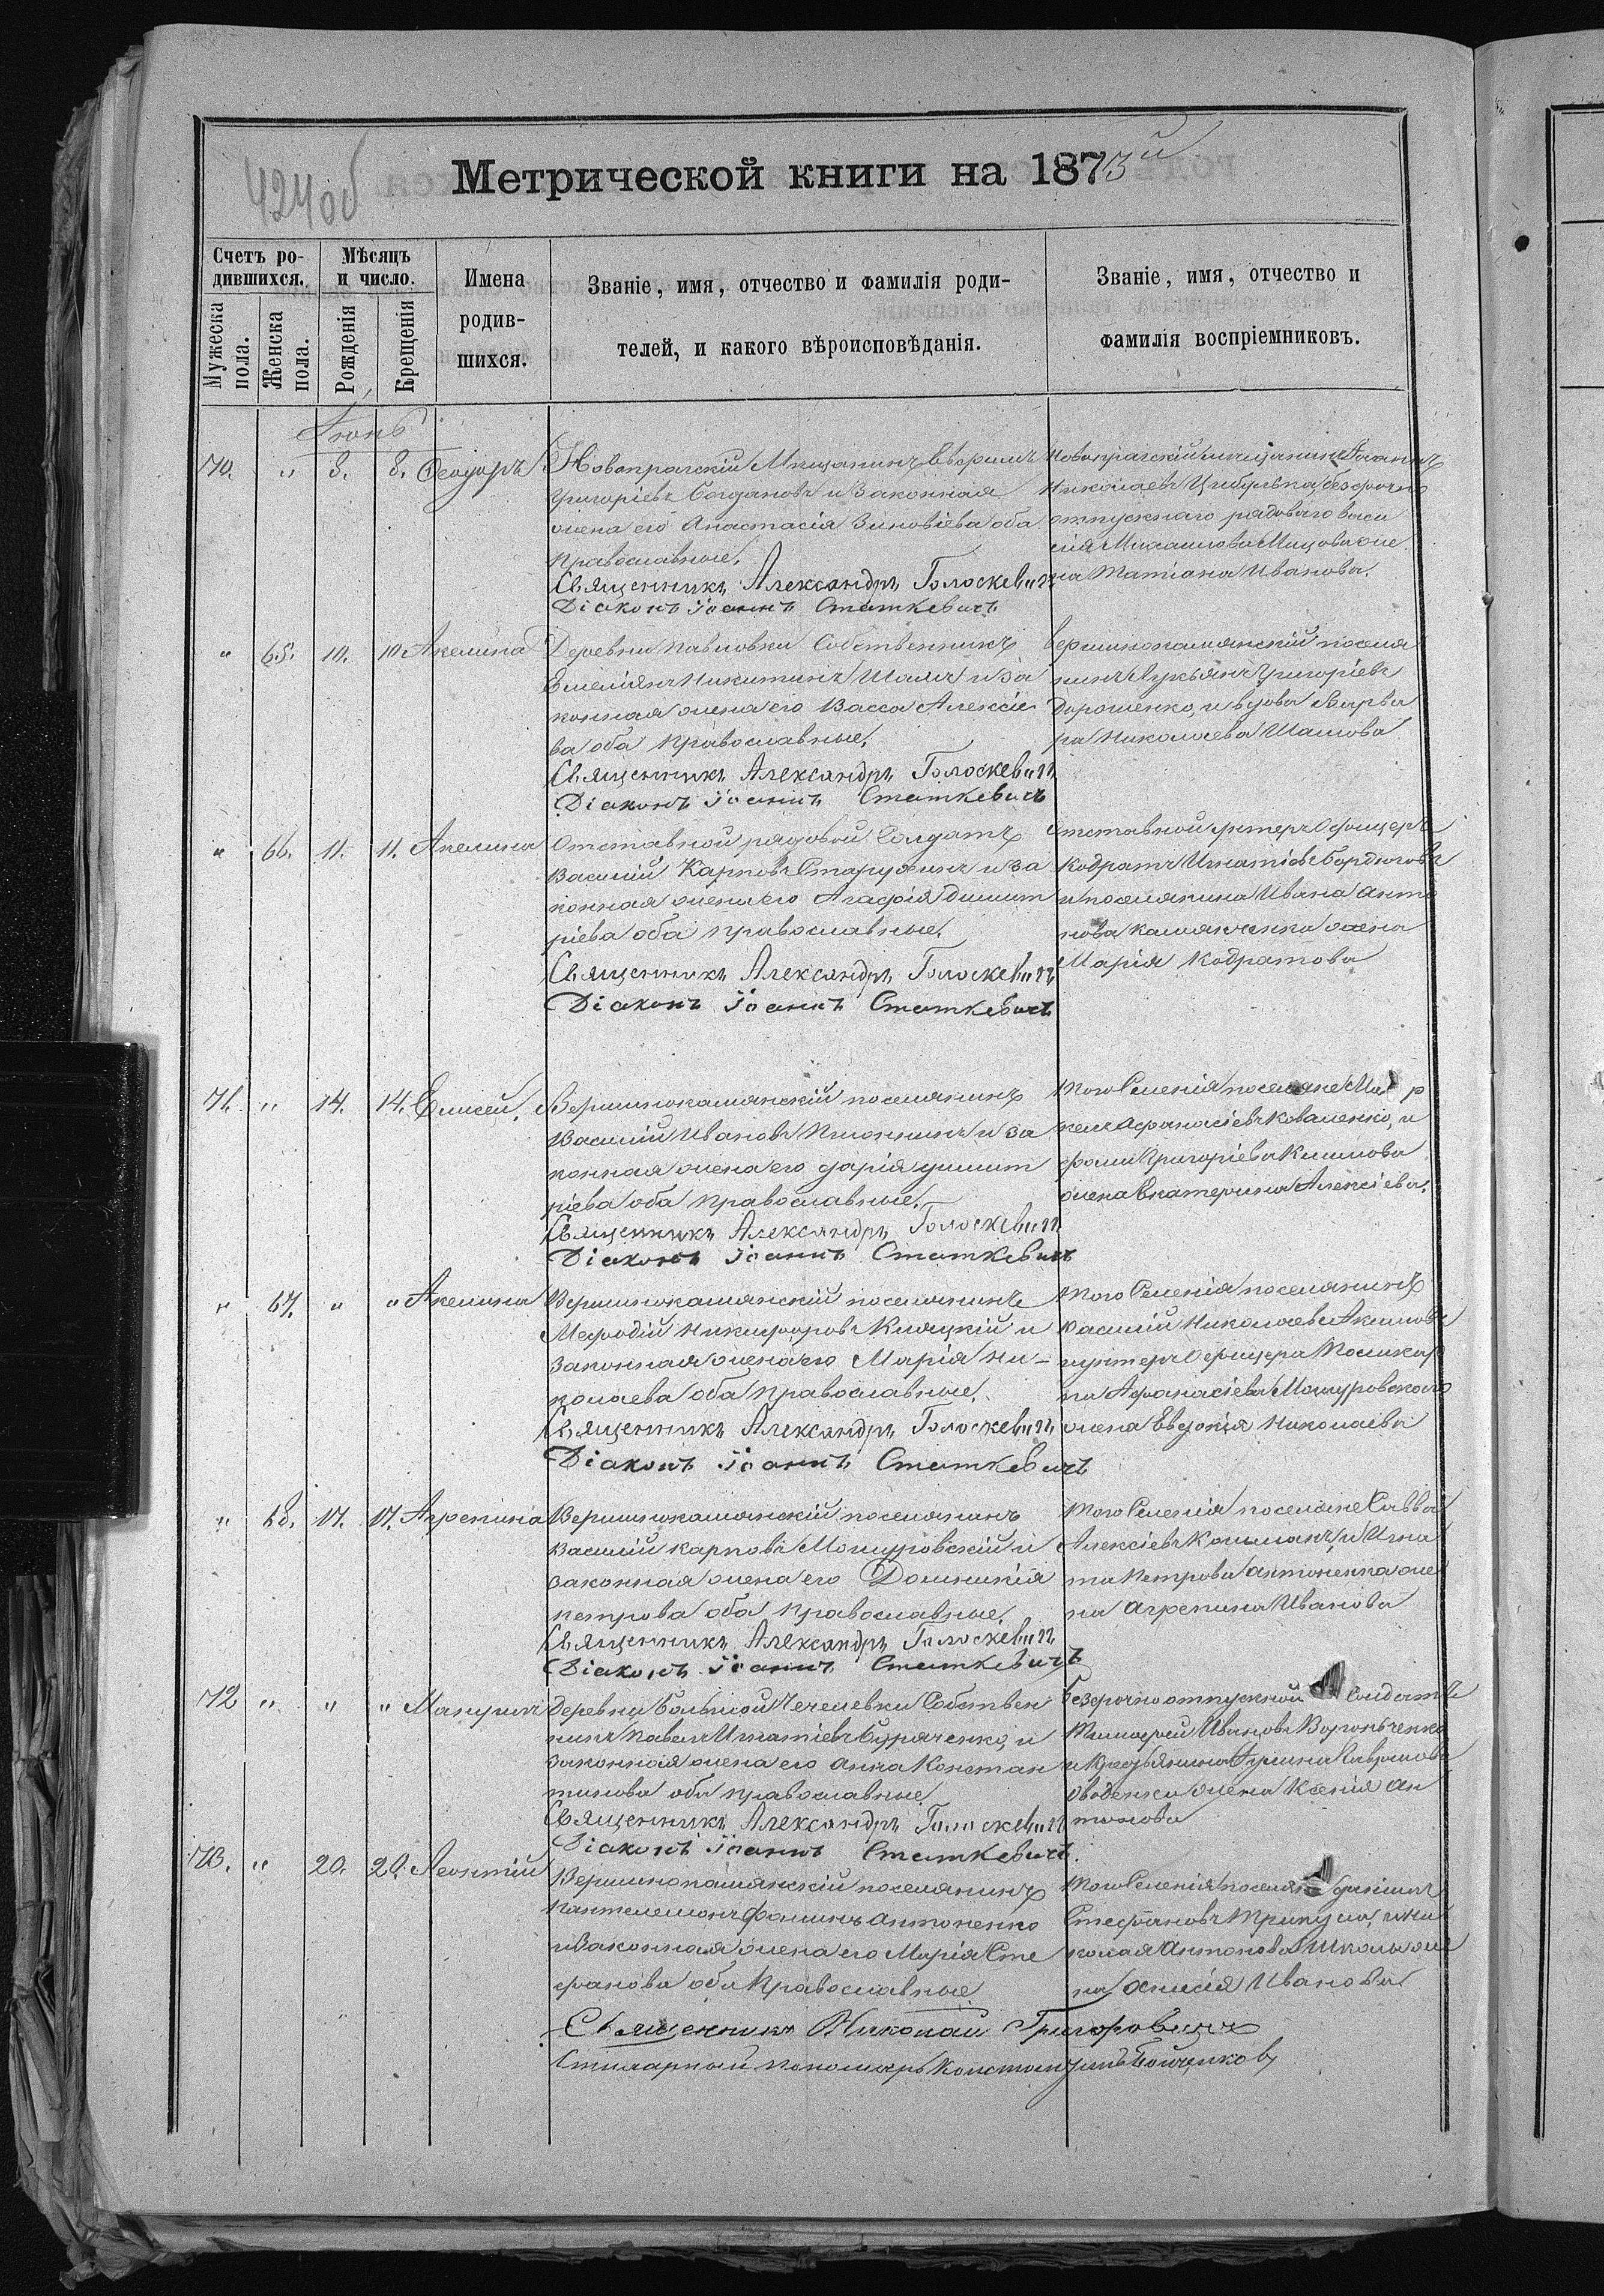 424об
Метрической книги на 1873й
Счетъ родившихся.
Мѣсяцъ и число.
Имена родившихся.
Званіе, имя, отчество и фамилія роди-
телей, и какого вѣроисповѣданія.
Званіе, имя, отчество и
фамилія воспріемниковъ.
Мужеска пола.
Женска пола.
Рожденія
Крещенія
Іюнь
70. " 8. 8. Ѳеодоръ
Новопрагскій Мещанинъ Ефремъ
Григоріевъ Богдановъ и Законная
жена его Анастасія Зиновіева оба
Православные.
Священникъ Александръ Голоскевичъ
Діаконъ Іоаннъ Статкевичъ
Новопрагскій мещанинъ Іоаннъ
Николаевъ Цыбулька, безсрочно
отпускнаго рядоваго Васи
лія Михаилова Мацова же
на Татіана Иванова.
" 65. 10. 10 Акелина
Деревни Павловки Собственникъ
Емеліянъ Никитинъ Шамъ и за
конная жена его Васса Алексіе
ва оба Православные.
Священникъ Александръ Голоскевичъ
Діаконъ Іоаннъ Статкевичъ
Вершинокамянскій поселя
нинъ Лукьянъ Григоріевъ
Дорошенко, и вдова Варва
ра Николаева Шамова
" 66. 11. 11. Акелина
Отставной рядовой Солдатъ
Василій Карповъ Старухинъ и за
конная жена его Агафія Димит
ріева оба православные.
Священникъ Александръ Голоскевичъ
Діаконъ Іоаннъ Статкевичъ
Отставной унтеръ Офицеръ
Кодратъ Игнатіевъ Бордюговъ
и поселянина Ивана Анто
нова Камянченка жена
Марія Кодратова
71. " 14. 14. Елисей.
Вершинокамянскій поселянинъ
Василій Ивановъ и за
конная жена его Дарія Димит
ріева оба православные.
Священникъ Александръ Голоскевичъ
Діаконъ Іоаннъ Статкевичъ
Того Селенія поселяне Мар
келъ Афанасіевъ Коваленко, и
Фомы Григоріева Климова
жена Екатерина Алексіева.
" 67. " " Акелина
Вершинокамянскій поселянинъ
Мефодій Никифоровъ Кляцкій и
законная жена его Марія Ни-
колаева оба православные.
Священникъ Александръ Голоскевичъ
Діаконъ Іоаннъ Статкевичъ
Того Селенія поселянинъ
Василій Николаевъ Акимовъ
и унтеръ Офицера Поликар
па Афанасіева Мошуровскаго
жена Евдокія Николаева
" 68. 17. 17. Агрепина
Вершинокамянскій поселянинъ
Василій Карповъ Мошуровскій и
законная жена его Домникія
Петрова оба православные.
Священникъ Александръ Голоскевичъ
Діаконъ Іоаннъ Статкевичъ
Того Селенія поселяне Савва
Алексіевъ и Игна
та Петрова Антоненка же
на Агрепина Иванова
72 " " " Мануилъ
Деревни Большой Чечелевки Собствен
никъ Павелъ Игнатіевъ Буряченко, и
законная жена его Анна Констан
тинова оба православные
Священникъ Александръ Голоскевичъ
Діаконъ Іоаннъ Статкевичъ.
Безсрочно отпускной Солдатъ
Тимофей Ивановъ
и крестьянина
жена Ксенія Ан
тонова
73. " 20. 20. Леонтій
Вершинокамянскій поселянинъ
Пантелемонъ Фоминъ Антоненко
и Законная жена его Марія Сте
фанова оба Православные
Священникъ Николай Григоровичъ
пономарь
Того Селенія Даніилъ
Стефановъ и Ни
колая Антонова же
на Анисія Иванова